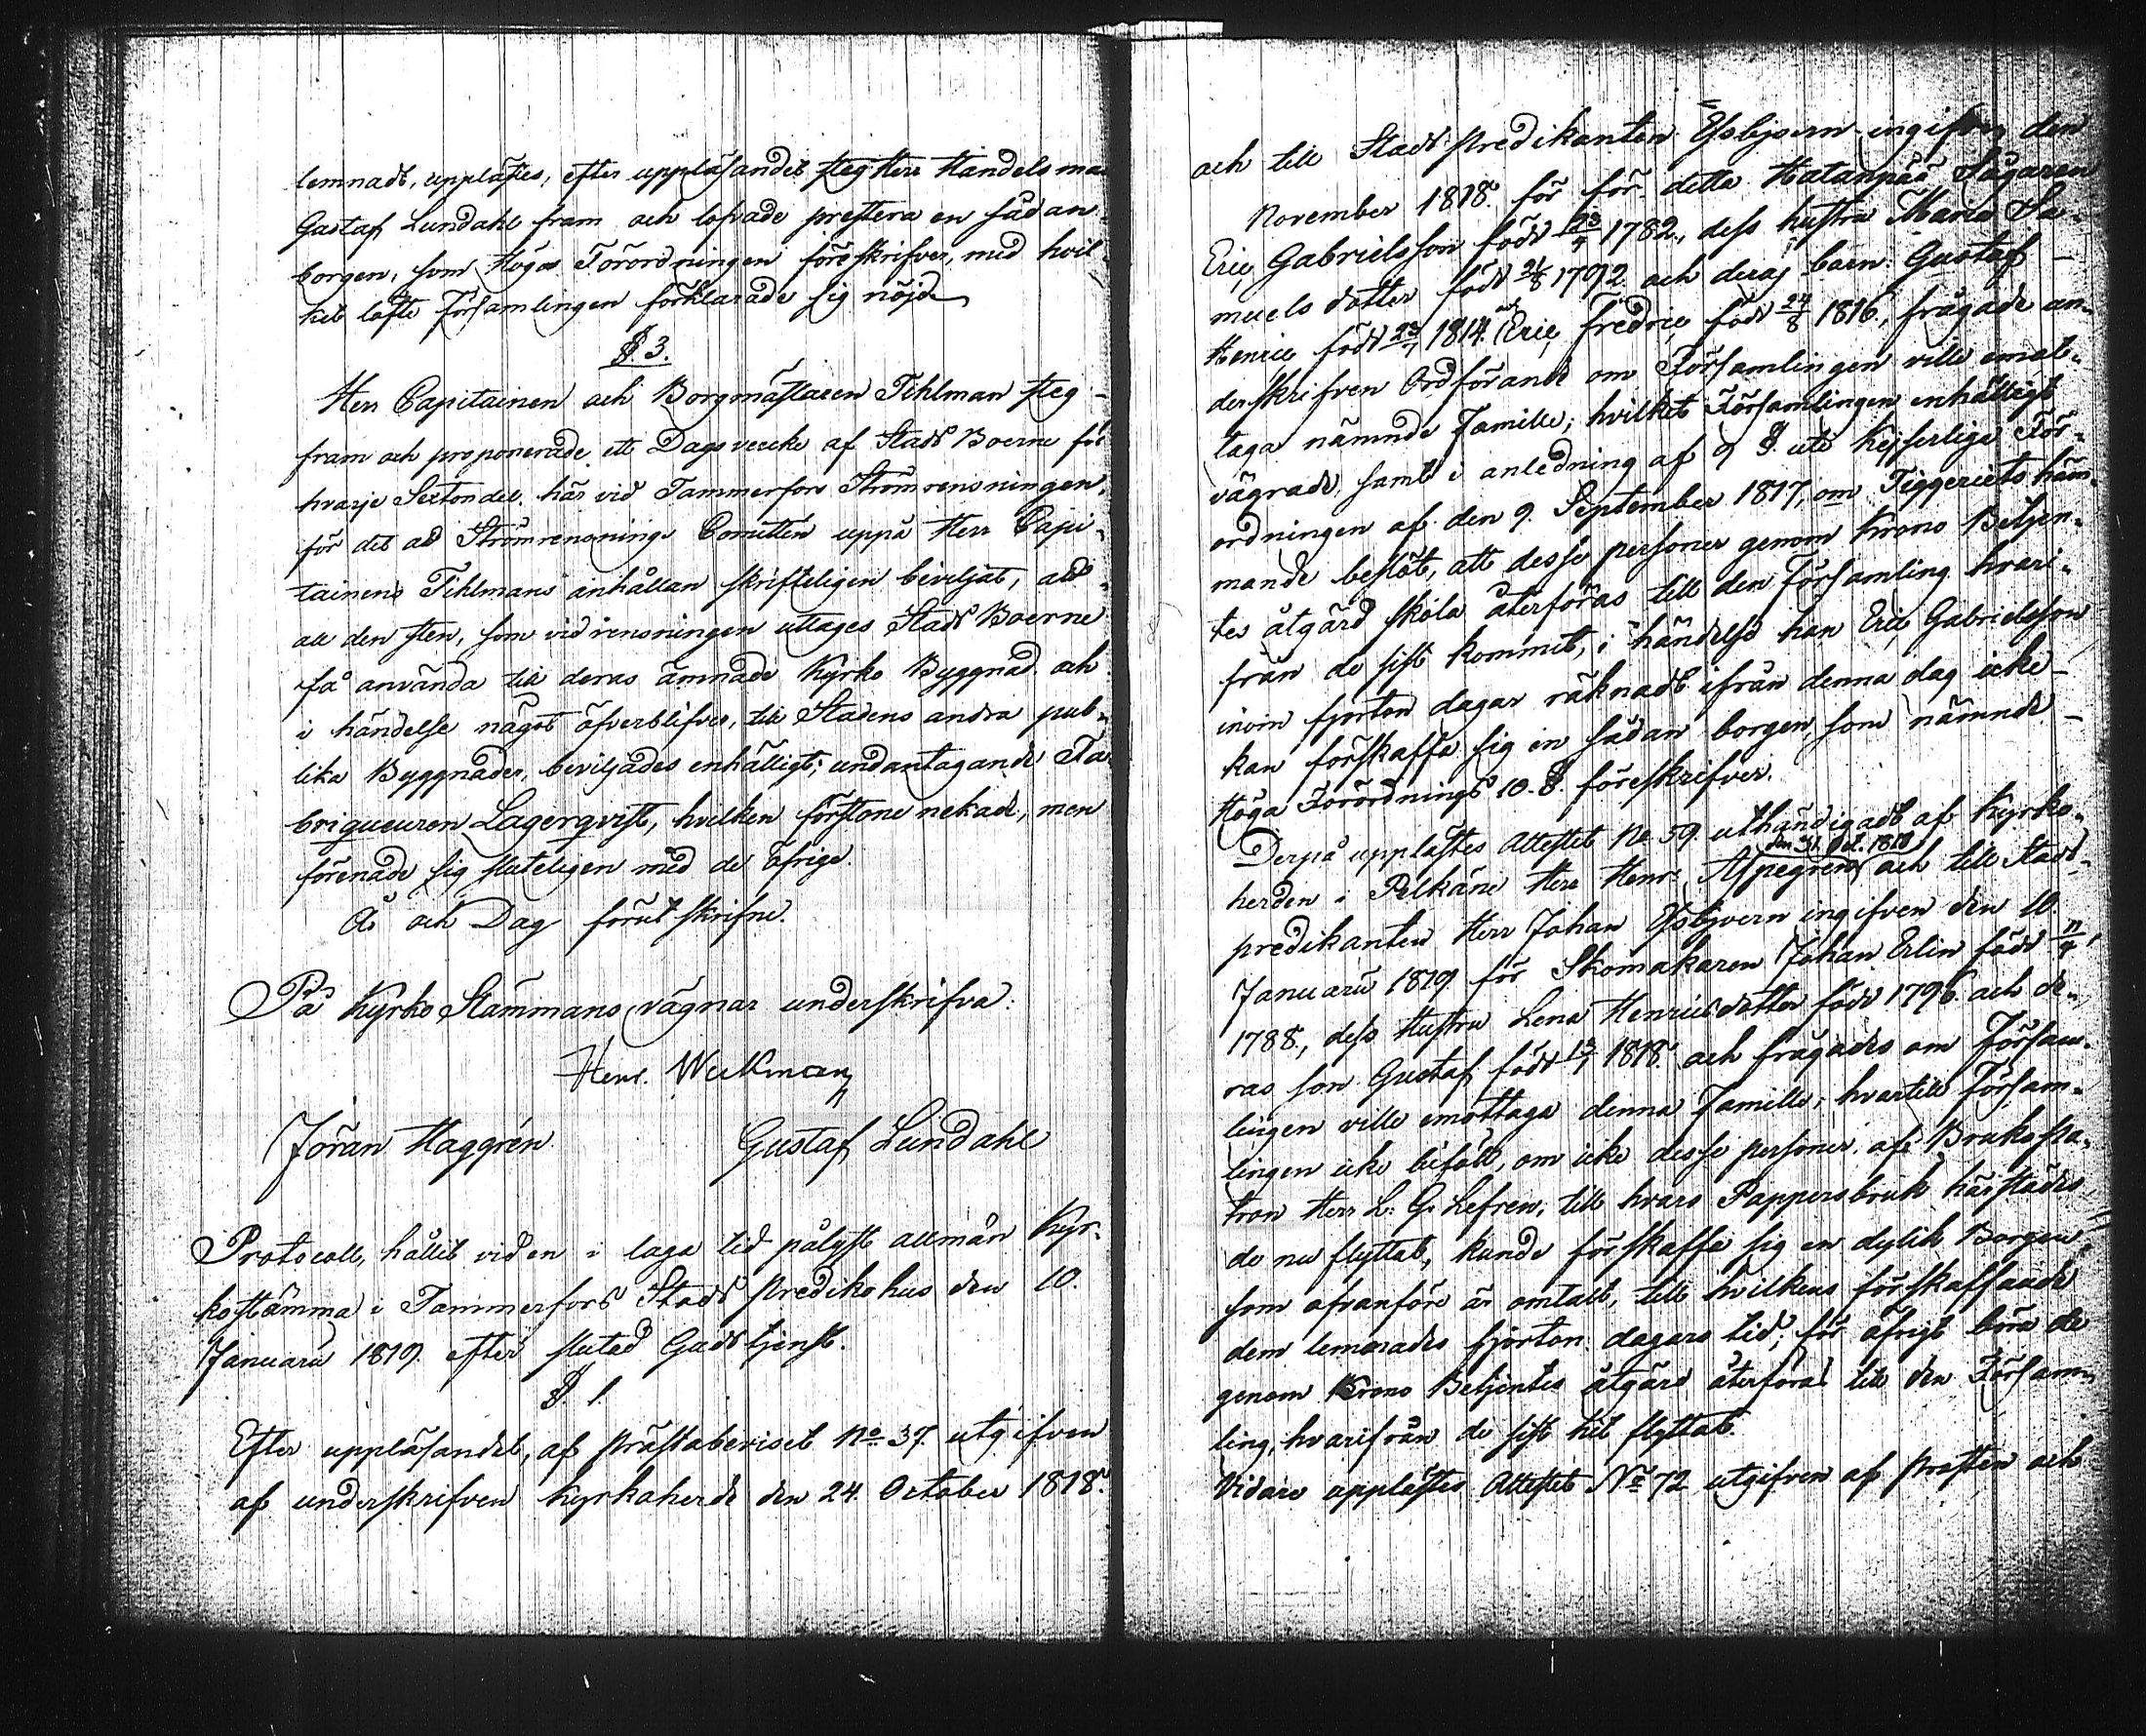 lemnadt, upplästes, efter uppläsandet steg Herr Handelsma
Gustaf Lundahl fram och lofvade prestera en sådan
borgen, som Höga Förordningen föreskrifver, med hvil-
ket löfte Församlingen förklarade sig nöjd.
§. 3.
Herr Capitainen och Borgmästaren Tihlman steg
fram och proponerade ett Dagsverke af Stads Boerne för
hvarje Sextondel här vid Tammerfors Strömrensningen,
för det at Strömrensnings Comitten uppå Herr Capi-
tainens Tihlmans anhållan skrifteligen beviljat, att
all den sten, som vid rensningen uttages Stads Boerne
få använda till deras ämnade Kyrko Byggnad och
i händelse något öfverblifver, till Stadens andra pub-
lika Byggnader, beviljades enhälligt; undantagande Fa-
briqueuren Lagerqvist, hvilken förstone nekade, men
förenade sig sluteligen med de öfriga.
Ås och Dag förut skrifne.
På Kyrko Stämmans vägnar underskrifva:
Henr. Wickman
Jöran Haggrén Gustaf Lundahl
Protocoll, hållit vid en i laga tid pålyst allmän Kyr-
kostämma i Tammerfors Stads Predikohus den 10.
Januarii 1819. efter slutad Gudstjenst.
§. 1.
Efter uppläsandet, af Prästabeviset No 37. utgifven
af underskrifven Kyrkoherde den 24. October 1818.
och till Stads Predikanten Essbjoern ingifven den
November 1818. för för detta Hatanpää Sågaren
Eric Gabrielsson född 23/9 1782., dess hustru Maria Sa-
muelsdotter född 21/8 1792 och deras barn Gustaf
Henric född 23/7 1814. och Eric Fredric född 24/8 1816., frågade un-
derskrifven Ordförande om Församlingen ville emot-
taga nämnde Famille; hvilket Församlingen enhälligt
vägrade, samt i anledning af 9 §. uti Kejserliga För-
ordningen af den 9. September 1817, om Tiggeriets häm-
mande beslöt, att desse personer genom Krono Betjen-
tes åtgärd skola återföras till den Församling hvari-
från de sist kommit, i händelse han Eric Gabrielsson
inom fjorton dagar räknadt ifrån denna dag icke
kan förskaffa sig en sådan borgen, som nämnde
Höga Förordnings 10. §. föreskrifver.
Derpå upplästes Attestet No 59. uthändigadt af Kyrko-
den 31. Oct. 1818
herden i Pelkäne Herr Henr. Aspegren och till Stads-
predikanten Herr Johan Essbjoern ingifven den 10.
Januarii 1819 för Skomakaren Johan Erlin född 11/9
1788., dess Hustru Lena Henricsdotter född 1796. och de-
ras son Gustaf född 13/1 1818. och frågades om Försam-
lingen ville emottaga denna Famille; hvartill Försam-
lingen icke biföll, om icke desse personer af Brukspa-
tron Herr L. G. Lefren, till hvars Pappersbruk härstädes
de nu flyttat, kunde förskaffa sig en dylik Borgen,
som ofvanföre är omtalt, till hvilkens förskaffande
dem lemnades fjorton dagars tid; för öfrigt böra de
genom Krono Betjentes åtgärd återföras till den Försam-
ling, hvarifrån de sist hit flyttat.
Vidare upplästes Attestet No 72 utgifven af Prosten och